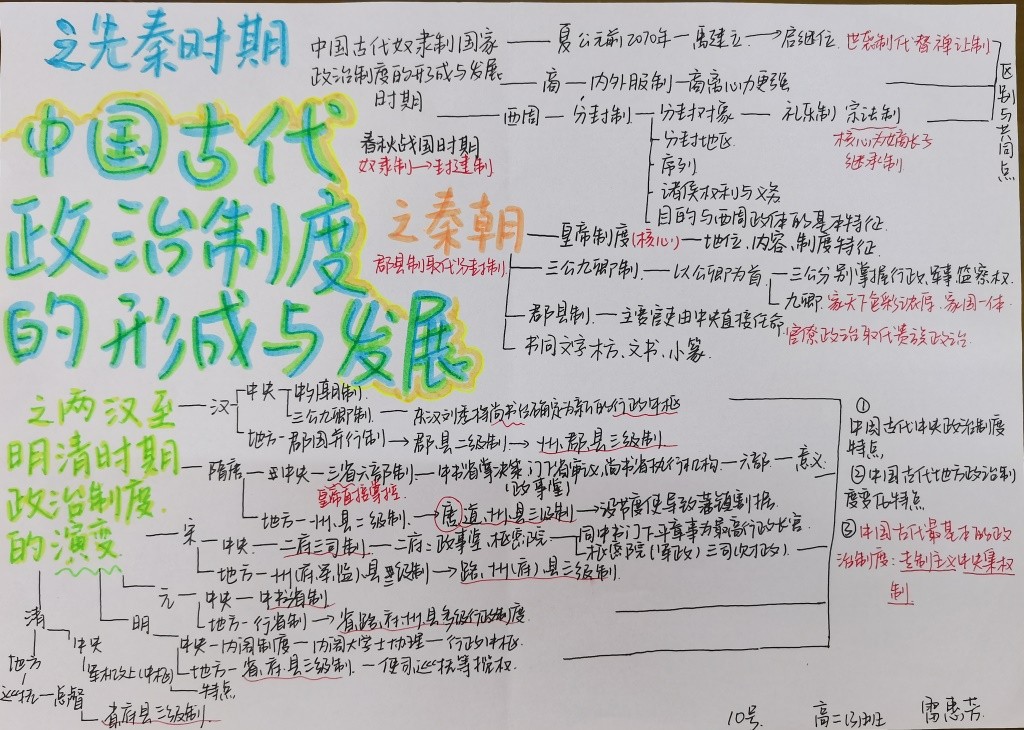 之先秦时期
中国古代奴隶制国家
政治制度的形成与发展
时期
夏公元前2070年 禹建立 启继位 世袭制代替禅让制
商 内外服制 商离心力更强
西周 分封制 分封对象 礼乐制 宗法制
核心为嫡长子
继承制
分封地区
序列
诸侯权利与义务
目的与西周政体的基本特征
区别与共同点
春秋战国时期
奴隶制→封建制
中国古代
政治制度
的形成与发展
之秦朝
郡县制取代分封制
皇帝制度(核心) 地位、内容、制度特征
三公九卿制 以公卿为首 三公分别掌握行政、军事、监察权
九卿 家天下色彩浓厚、家国一体
官僚政治取代贵族政治
郡县制 主要官吏由中央直接任命
书同文字 木方、文书、小篆
之两汉至
明清时期
政治制度
的演变
汉 中央 中外朝制
三公九卿制 东汉刘秀将尚书台确定为新的行政中枢
地方 郡国并行制→郡、县二级制→州、郡、县三级制
隋唐 中央 三省六部制 中书省草决策、门下省审议、尚书省执行机构 六部 意义
皇帝直接掌控
(政事堂)
地方 州、县二级制→唐道、州、县三级制→设节度使导致藩镇割据
宋 中央 二府三司制 二府:政事堂、枢密院 同中书门下平章事为最高行政长官
枢密院(军政) 三司(财政)
地方 州(府、军、监)、县二级制→路、州(府)、县三级制
元 中央 中书省制
地方 行省制→省、路、府、州、县多级行政制度
明 中央 内阁制度 内阁大学士协理 行政中枢
地方 省、府、县三级制 使司、巡抚等掌权
特点
清
中央
军机处(中枢)
地方
巡抚 总督
省府县三级制
①
中国古代中央政治制度
特点
②中国古代地方政治制
度变化特点
③中国古代最基本的政
治制度:专制主义中央集权
制
10号 高二(3)班 雷惠芳